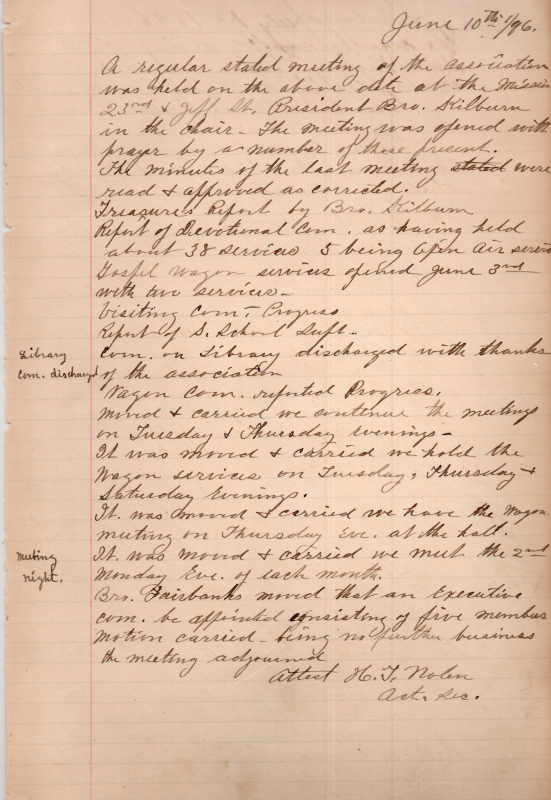 June 10th 1/96.
A regular stated meeting of the association
was held on the above date at the Mission
23rd & Jeff. St. President Bro. Kilburn
in the chair - The meeting was opened with
prayer by a number of those present.
The minutes of the last meeting stated were
read & approved as corrected.
Treasure's Report by Bro. Kilburn
Report of Devotional Com. as having held
about 38 services 5 being Open Air service
Gospel Wagon services opened June 3rd
with two services -
Visiting Com. Progress
Report of S. School Supt. -
Library
Com. discharged
Com. on Library discharged with thanks
of the association
Wagon Com. reported Progress.
Moved & carried we continue the meetings
on Tuesday & Thursday evenings -
It was moved & carried we hold the
Wagon services on Tuesday, Thursday &
Saturday Evenings.
It was moved & carried we have the Wagon
meeting on Thursday Eve. at the hall.
Meeting
night.
It was moved & carried we meet the 2nd
Monday Eve. of each month.
Bro. Fairbanks moved that an Executive
com. be appointed consisting of five members
Motion carried - being no further business
the meeting adjourned
Attest H. T. Nolen
Act. Sec.